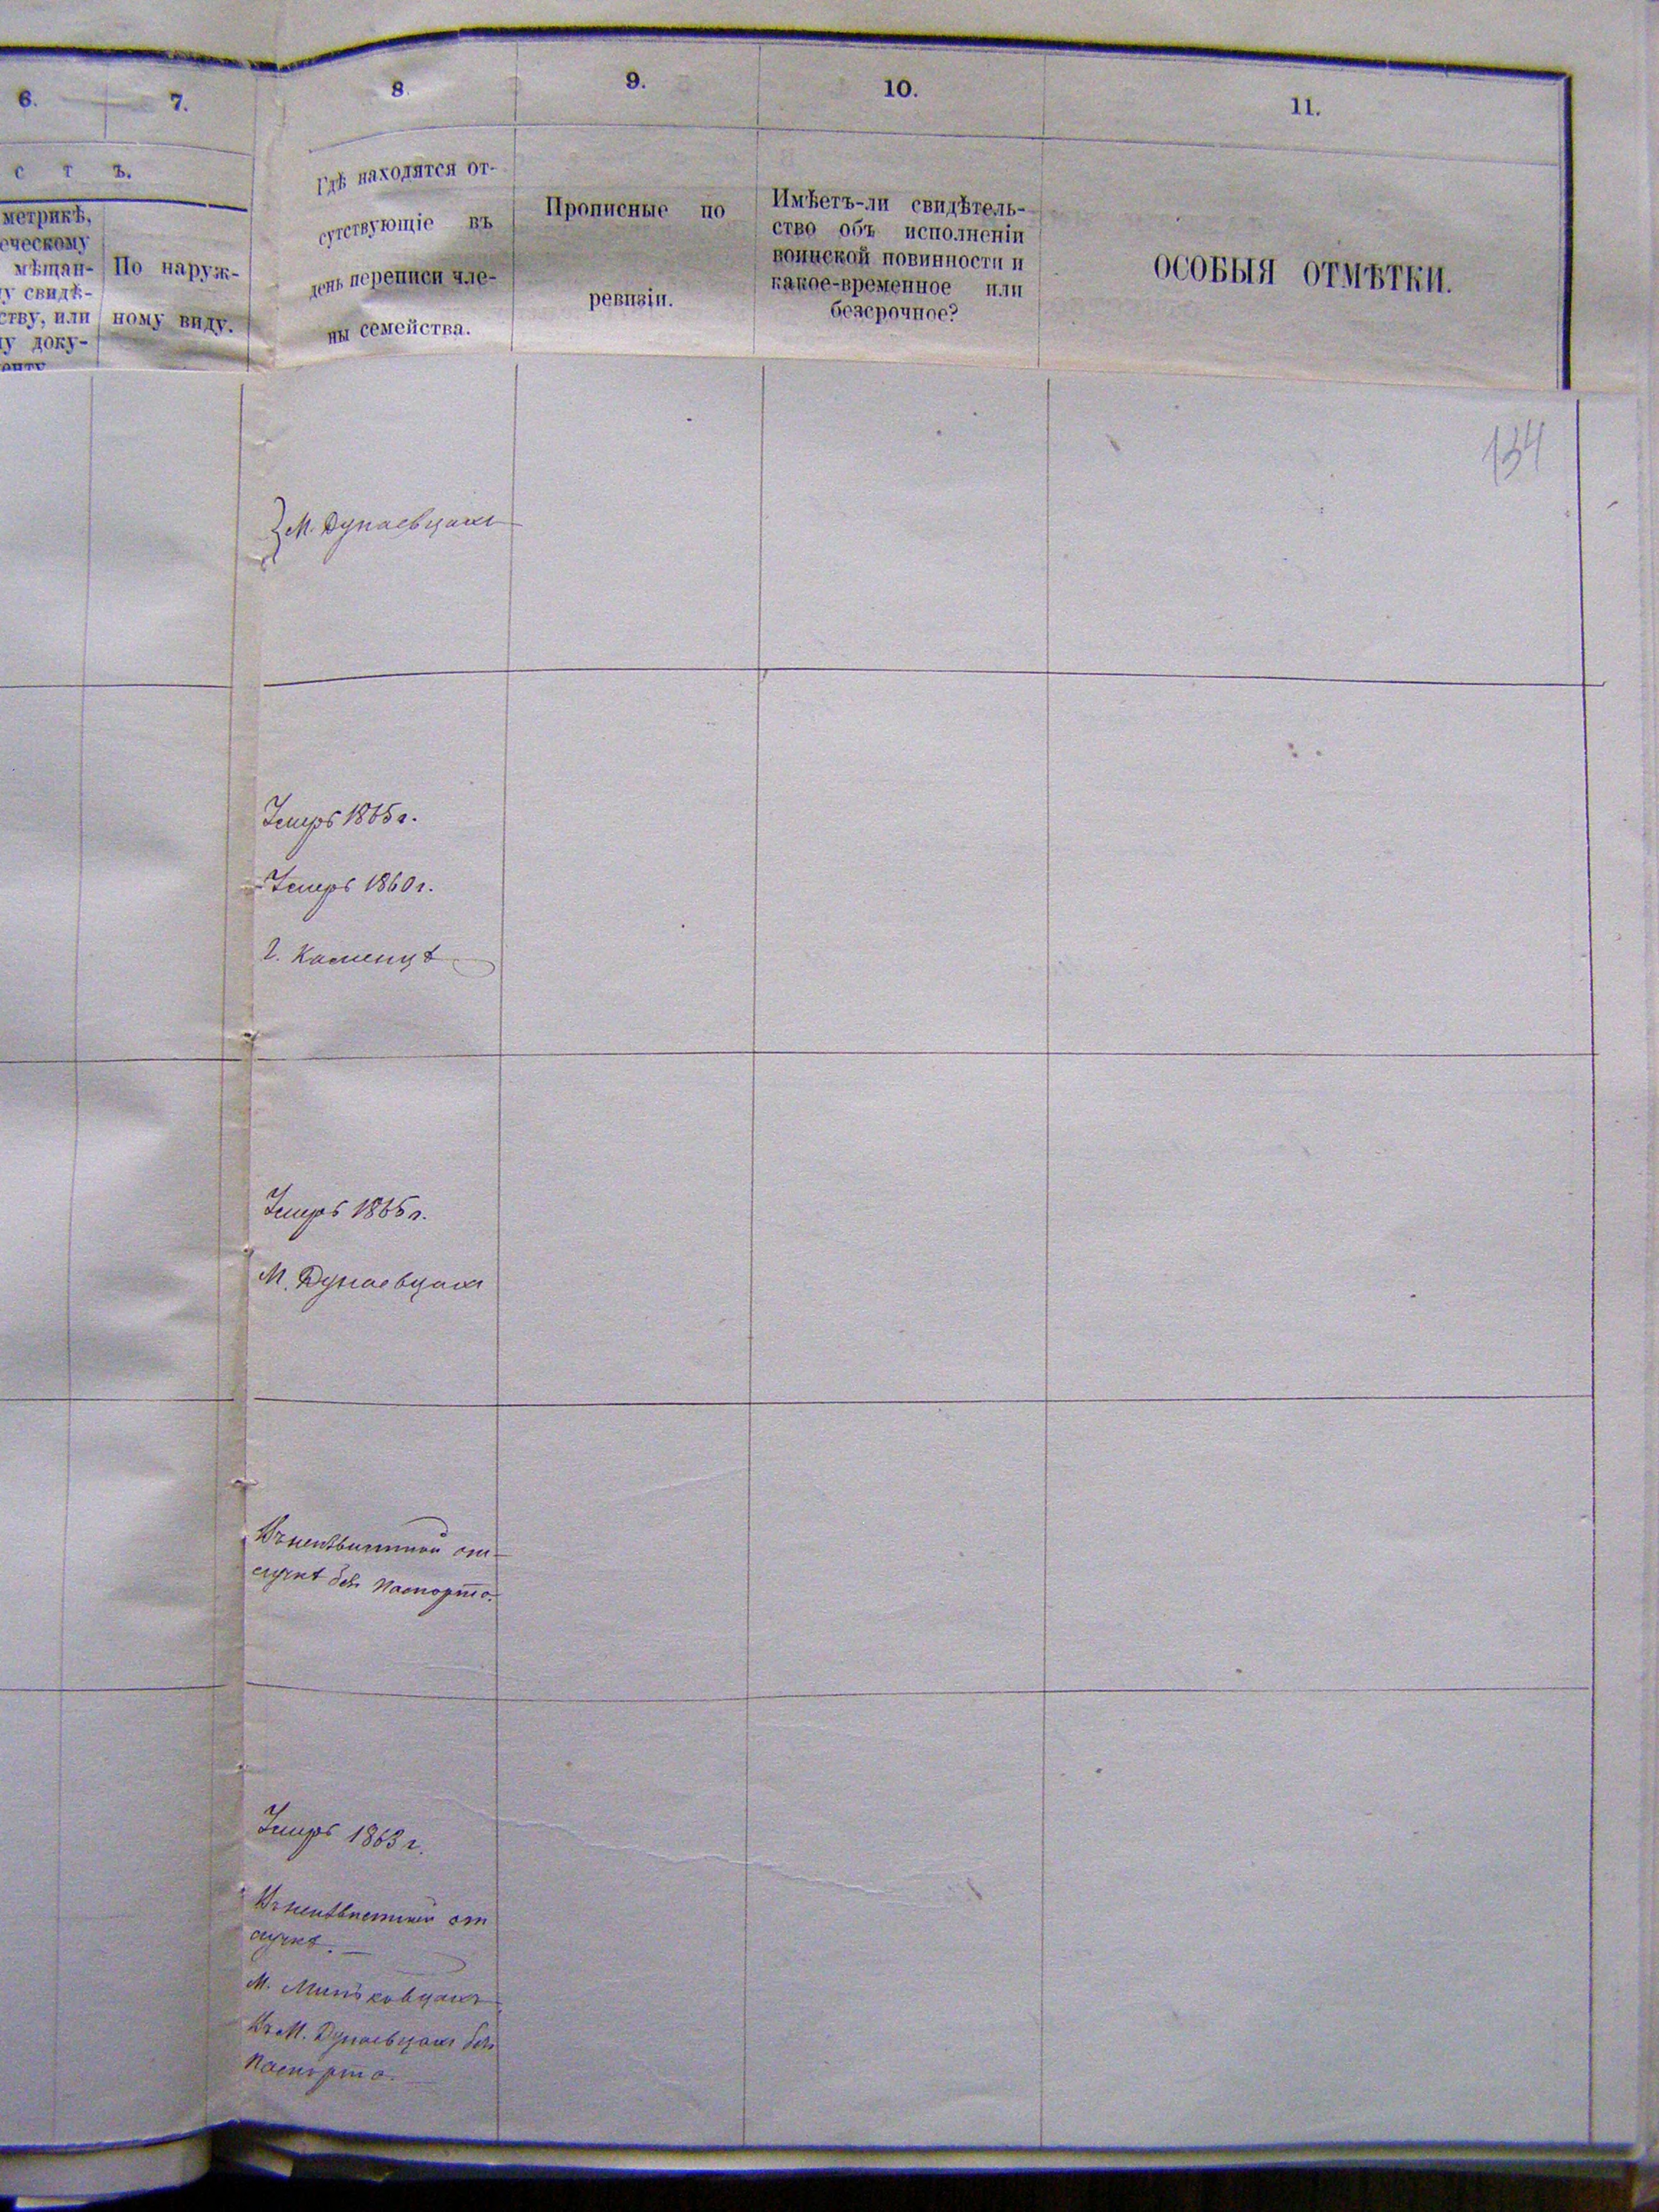 6.
7.
8.
9.
10.
11.
с т ъ.
метрикѣ,
еческому
мѣщан-
у свидѣ-
ству, или
у доку-
енту
По наруж-
ному виду.
Гдѣ находятся от-
сутствующіе въ
день переписи чле-
ны семейства.
Прописные по
ревизіи.
Имѣетъ-ли свидѣтель-
ство объ исполненіи
воинской повинности и
какое-временное или
безсрочное?
ОСОБЫЯ ОТМѢТКИ.
134
М. Дунаевцахъ
Умеръ 1865 г.
Умеръ 1860 г.
г. Каменцѣ
Умеръ 1865 г.
М. Дунаевцахъ
Въ неизвѣстной от-
лучкѣ безъ паспорта.
Умеръ 1863 г.
Въ неизвѣстной от
лучкѣ.
М. Миньковцахъ
Въ М. Дунаевцахъ безъ
паспорта.